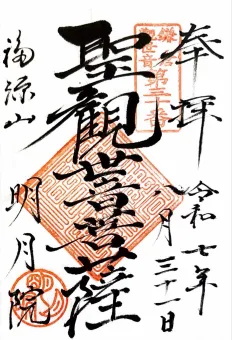 奉拝
令和七年
八月三十一日
鎌倉
観世音第三十番
聖観世音菩薩
福源山
明月院